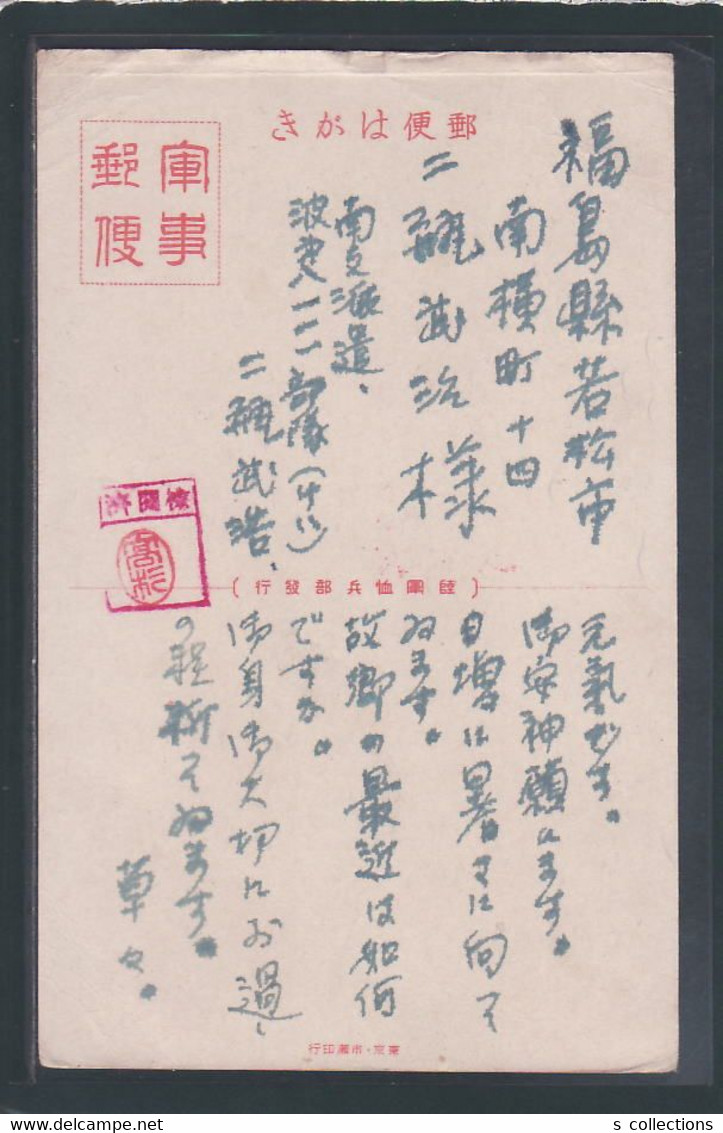 郵便はがき
軍事
郵便
福島縣若松市
南横町十四
二瓶武治様
南支派遣、
波考八一一一部隊
二瓶武浩、
検閲済
高杉
(陸軍恤兵部發行)
元氣です。
御安神願います。
日増に暑さに向て
ゐます。
故郷の最近は如何
ですか。
御身御大切にお過し
の程祈てゐます。
草々。
東京・市瀬印行
s collections